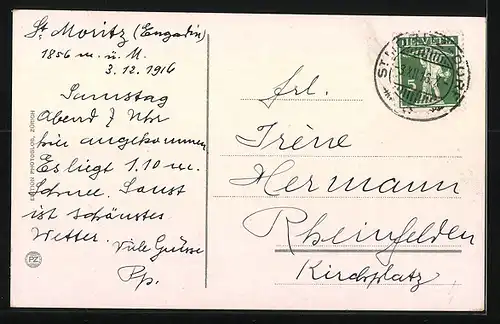 St. Moritz (Engadin)
1856 m. ü. M.
3.12.1916
Samstag
Abend 7 Uhr
hier angekommen
Es liegt 1.10 m.
Schnee. Sonst
ist schönstes
Wetter.
Viele Grüsse
Pp.
EDITION PHOTOGLOB, ZÜRICH
PZ
HELVETIA
5
ST.
DORF
Frl.
Irène
Hermann
Rheinfelden
Kirchplatz